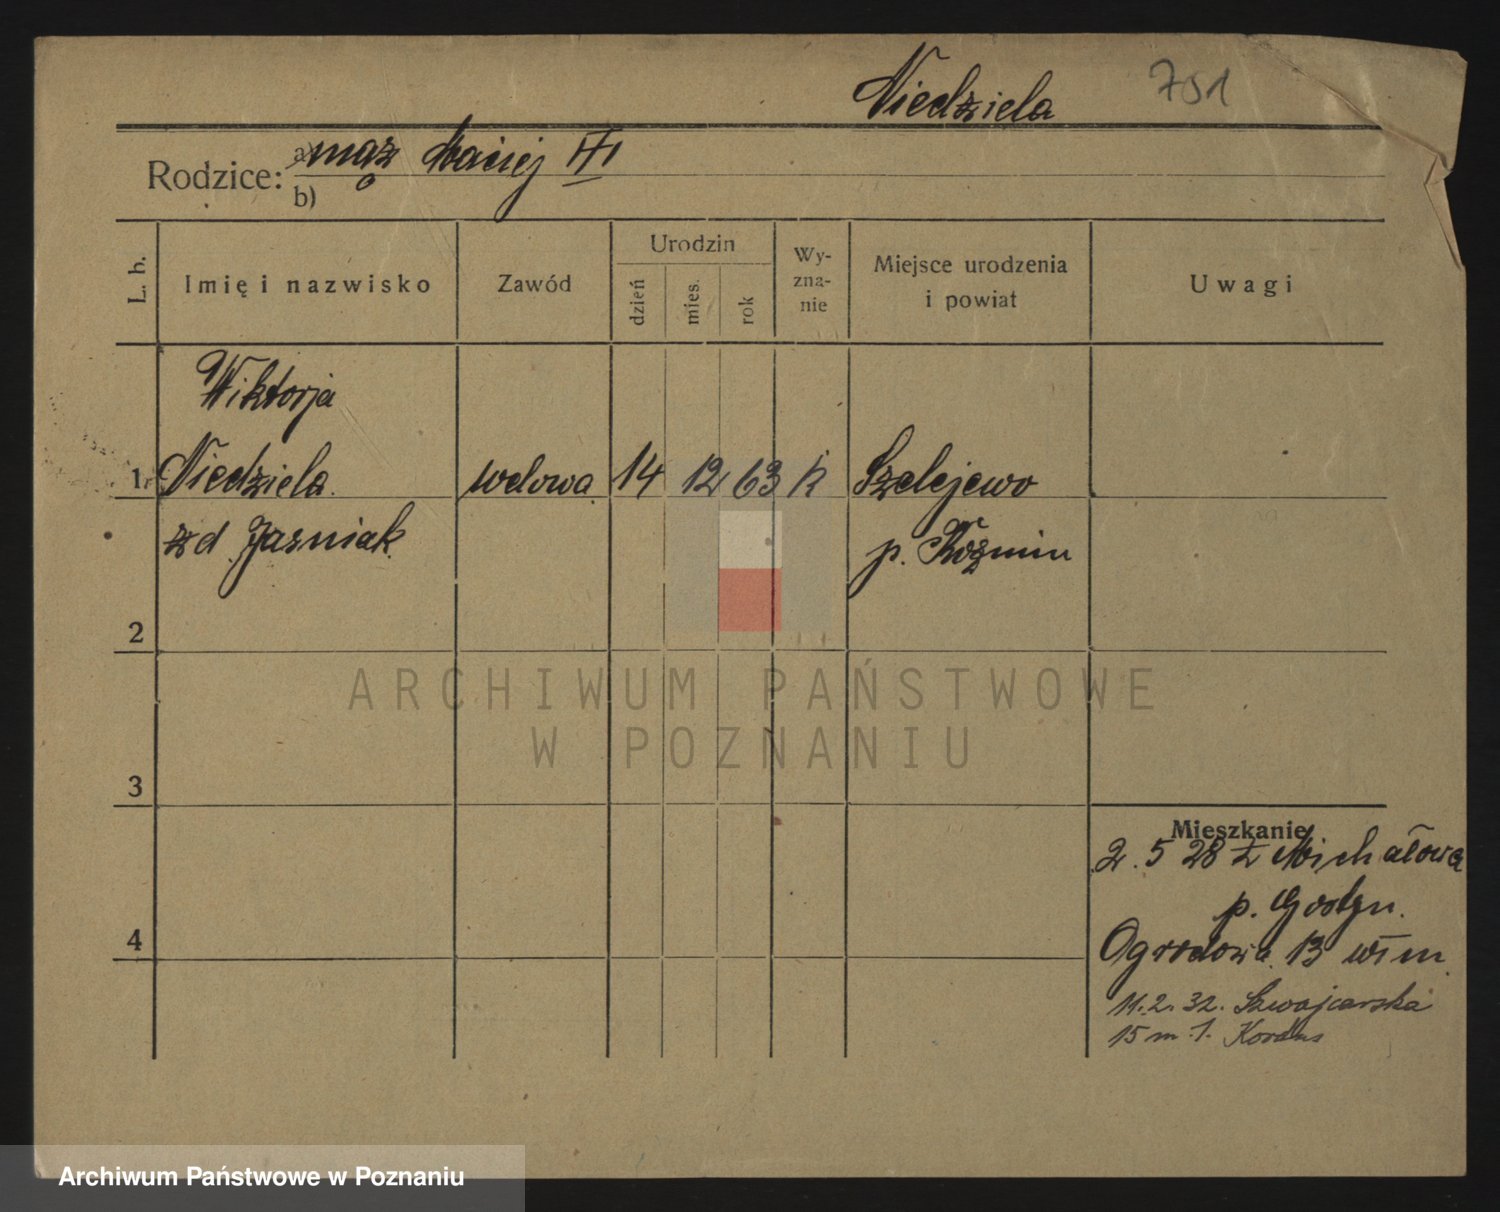 Niedziela 751
Rodzice: a) mąż Maciej
b)
L. b. Imię i nazwisko Zawód Urodzin dzień mies. rok Wy-zna-nie Miejsce urodzenia i powiat Uwagi
Wiktorja
1. Niedziela wdowa 14 12 63 k Szelejewo
zd Jasniak p. Koźmin
2
ARCHIWUM PAŃSTWOWE
W POZNANIU
3
Mieszkanie
2. 5 28 z Michałowa
p. Gostyn.
4 Ogrodowa 13
11. 2. 32. Szwajcarska
15 m 1. Kordus
Archiwum Państwowe w Poznaniu